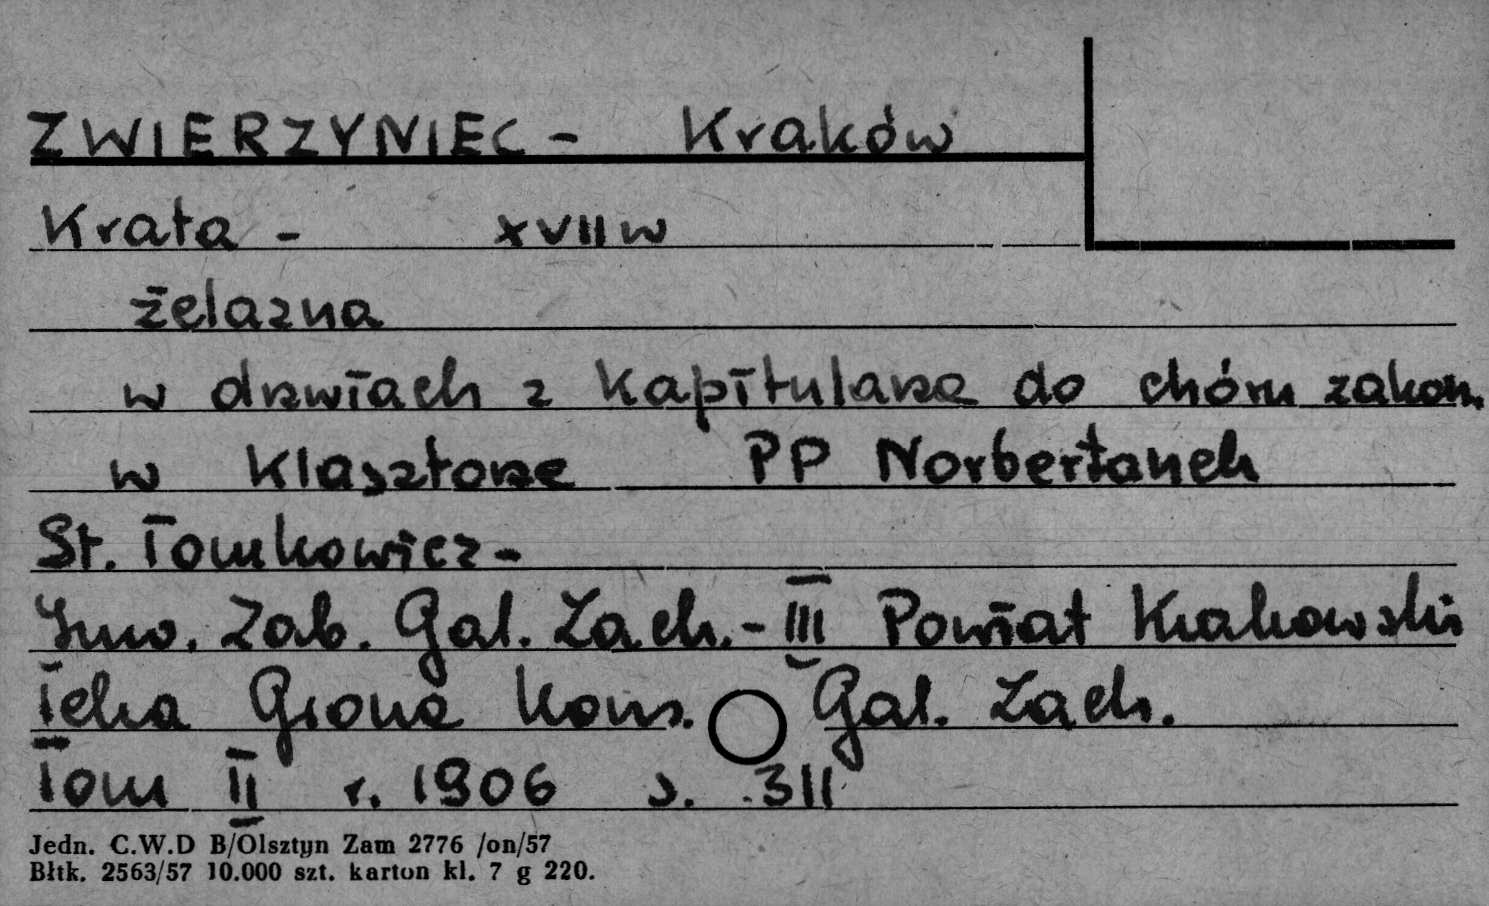 ZWIERZYNIEC - Kraków
Krata - XVII w
żelazna
w drzwiach z kapitularza do chóru zakon.
w klasztorze PP Norbertanek
St. Tomkowicz -
Inw. Zab. Gal. Zach. - III Powiat Krakowski
Teka Grona Kons. Gal. Zach.
Tom II r. 1906 s. 311
Jedn. C.W.D B/Olsztyn Zam 2776 /on/57
Błtk. 2563/57 10.000 szt. karton kl. 7 g 220.